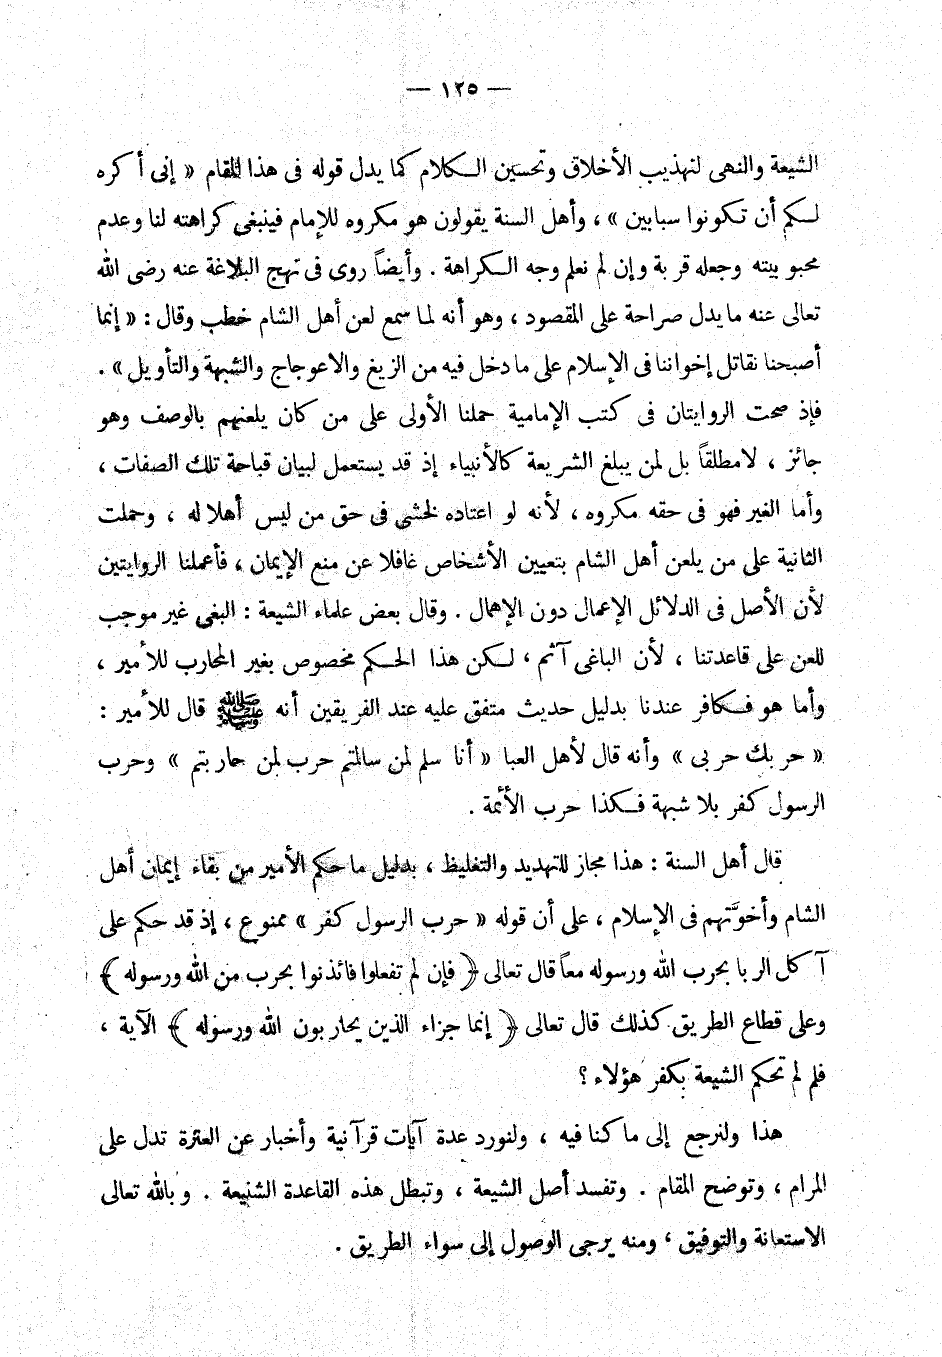 — ١٢٥ —
الشيعة والنهى لتهذيب الأخلاق وتحسين الكلام كما يدل قوله فى هذا المقام « إنى أكره
لكم أن تكونوا سبابين » ، وأهل السنة يقولون هو مكروه للإمام فينبغى كراهته لنا وعدم
محبوبيته وجعله قربة وإن لم نعلم وجه الكراهة . وأيضاً روى فى نهج البلاغة عنه رضى الله
تعالى عنه ما يدل صراحة على المقصود ، وهو أنه لما سمع لعن أهل الشام خطب وقال : « إنما
أصبحنا نقاتل إخواننا فى الإسلام على ما دخل فيه من الزيغ والاعوجاج والشبهة والتأويل » .
فإذ صحت الروايتان فى كتب الإمامية حملنا الأولى على من كان يلعنهم بالوصف وهو
جائز ، لا مطلقاً بل لمن يبلغ الشريعة كالأنبياء إذ قد يستعمل لبيان قباحة تلك الصفات ،
وأما الغير فهو فى حقه مكروه ، لأنه لو اعتاده لخشى فى حق من ليس أهلا له ، وحملت
الثانية على من يلعن أهل الشام بتعيين الأشخاص غافلا عن منع الإيمان ، فأعملنا الروايتين
لأن الأصل فى الدلائل الإعمال دون الإهمال . وقال بعض علماء الشيعة : البغى غير موجب
للعن على قاعدتنا ، لأن الباغى آثم ، لكن هذا الحكم مخصوص بغير المحارب للأمير ،
وأما هو فكافر عندنا بدليل حديث متفق عليه عند الفريقين أنه ﷺ قال للأمير :
« حربك حربى » وأنه قال لأهل العبا « أنا سلم لمن سالمتم حرب لمن حاربتم » وحرب
الرسول كفر بلا شبهة فكذا حرب الأئمة .
قال أهل السنة : هذا مجاز للتهديد والتغليظ ، بدليل ما حكم الأمير من بقاء إيمان أهل
الشام وأخوّتهم فى الإسلام ، على أن قوله « حرب الرسول كفر » ممنوع ، إذ قد حكم على
آكل الربا بحرب الله ورسوله معاً قال تعالى ﴿ فإن لم تفعلوا فائذنوا بحرب من الله ورسوله ﴾
وعلى قطاع الطريق كذلك قال تعالى ﴿ إنما جزاء الذين يحاربون الله ورسوله ﴾ الآية ،
فلم لم تحكم الشيعة بكفر هؤلاء ؟
هذا ولنرجع إلى ما كنا فيه ، ولنورد عدة آيات قرآنية وأخبار عن العترة تدل على
المرام ، وتوضح المقام . وتفسد أصل الشيعة ، وتبطل هذه القاعدة الشنيعة . وبالله تعالى
الاستعانة والتوفيق ، ومنه يرجى الوصول إلى سواء الطريق .